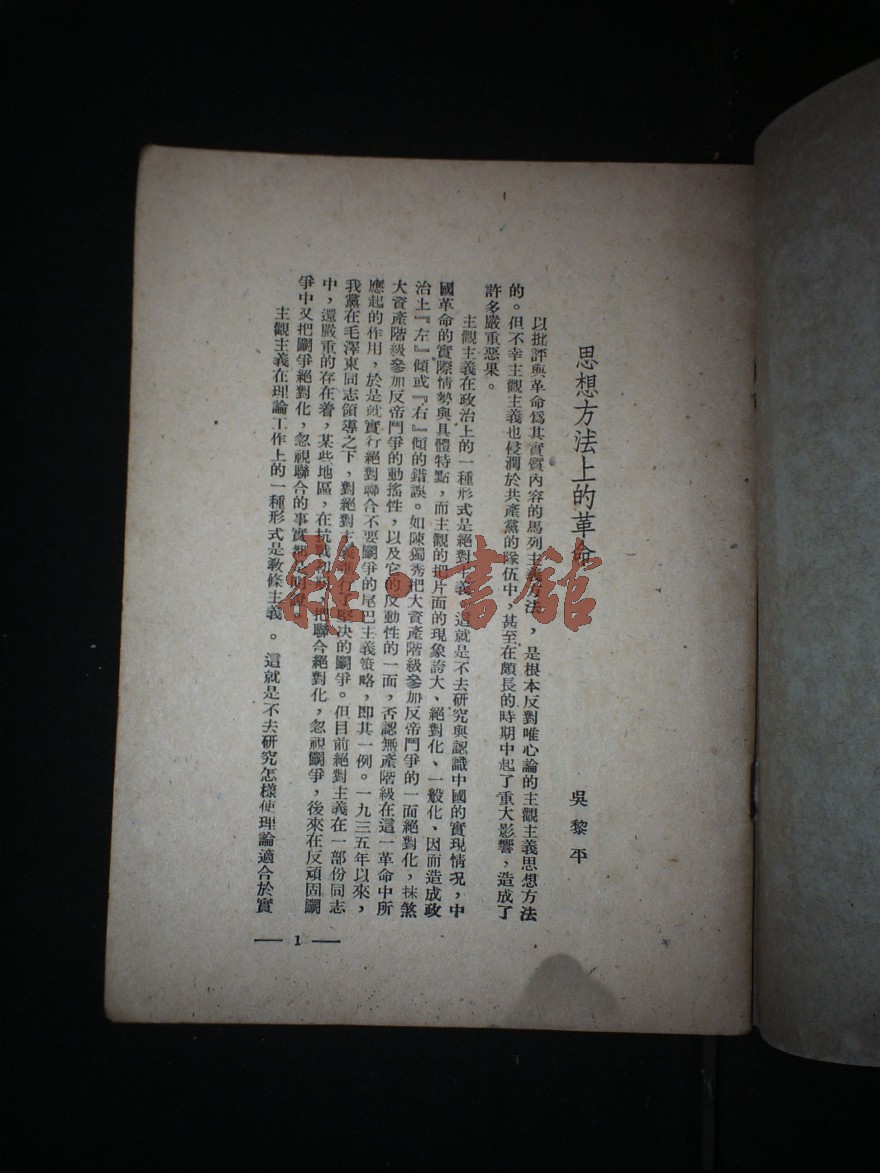 思想方法上的革命
吳黎平
以批評與革命爲其實質內容的馬列主義方法，是根本反對唯心論的主觀主義思想方法
的。但不幸主觀主義也侵潤於共產黨的隊伍中，甚至在頗長的時期中起了重大影響，造成了
許多嚴重惡果。
主觀主義在政治上的一種形式是絕對主義。這就是不去研究與認識中國的實現情况，中
國革命的實際情勢與具體特點，而主觀的把片面的現象誇大、絕對化、一般化、因而造成政
治上『左』傾或『右』傾的錯誤。如陳獨秀把大資產階級參加反帝鬥爭的一面絕對化，抹煞
大資產階級參加反帝鬥爭的動搖性，以及它的反動性的一面，否認無產階級在這一革命中所
應起的作用，於是就實行絕對聯合不要鬭爭的尾巴主義策略，即其一例。一九三五年以來，
我黨在毛澤東同志領導之下，對絕對主義進行了堅决的鬭爭。但目前絕對主義在一部份同志
中，還嚴重的存在着，某些地區，在抗戰初期，把聯合絕對化，忽視鬭爭，後來在反頑固鬭
爭中又把鬭爭絕對化，忽視聯合的事實
主觀主義在理論工作上的一種形式是教條主義。這就是不去研究怎樣使理論適合於實
1
雜·書館